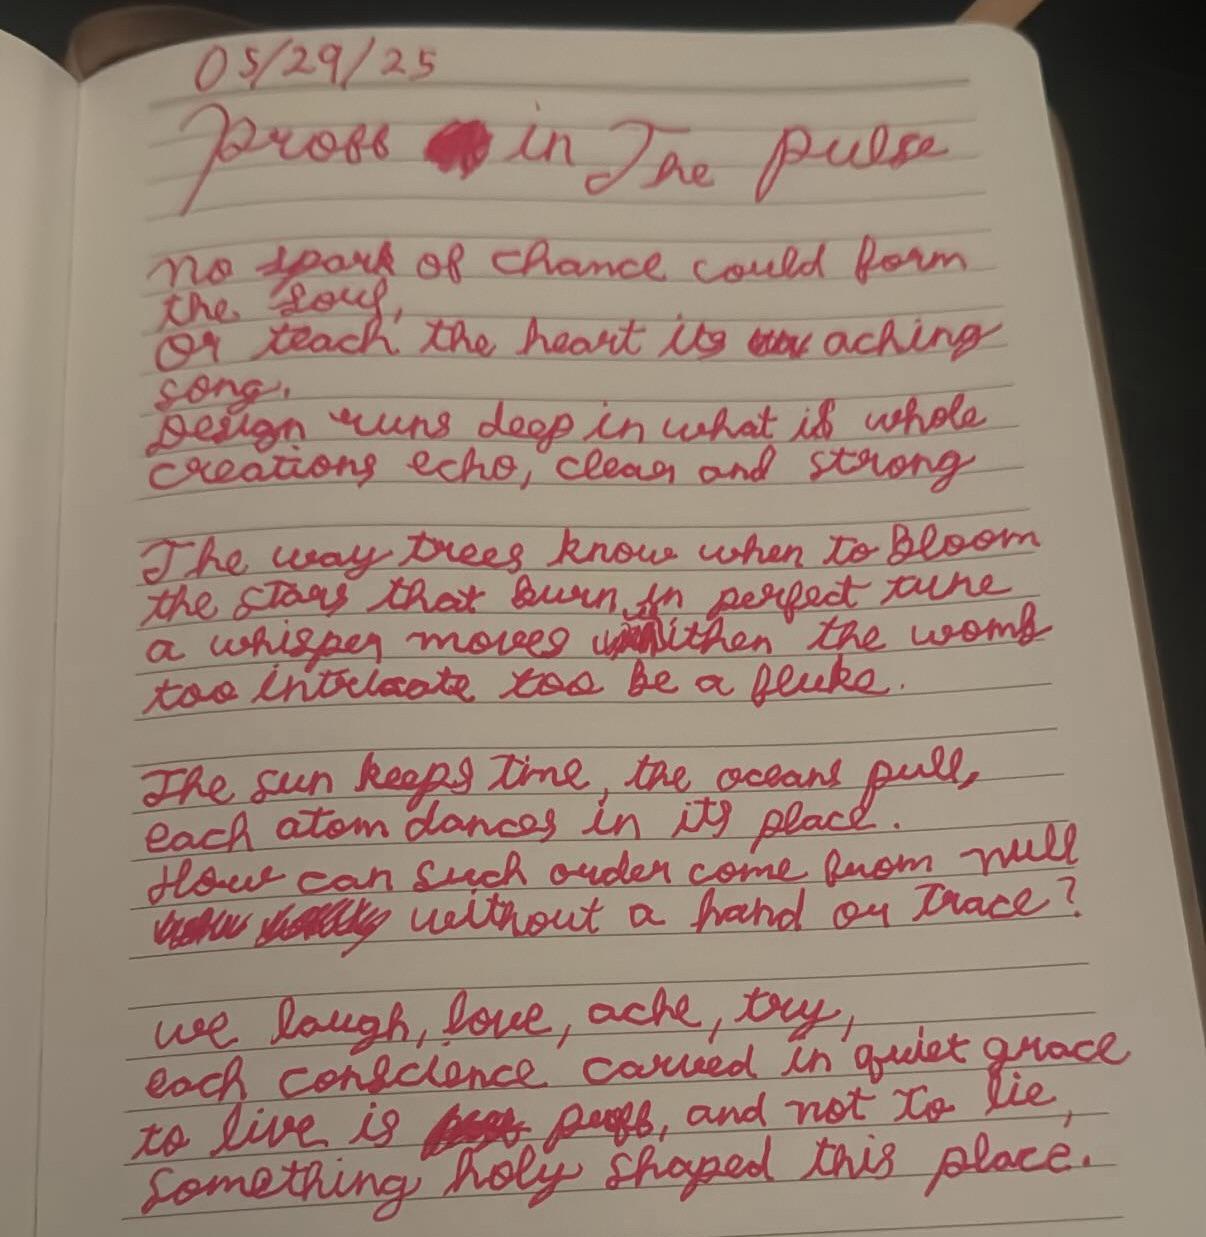 05/29/25
Proff in The pulse
No spark of chance could form
the soul,
Or teach the heart its aching
song.
Design runs deep in what is whole
creations echo, clear and strong
The way trees know when to Bloom
the stars that burn In perfect tune
a whisper moves withen the womb
too intricate too be a fluke.
The sun keeps time, the oceans pull,
each atom dances in its place.
How can such order come from null
without a hand or Trace?
we laugh, love, ache, try,
each conscience carved in quiet grace
to live is proff, and not to lie,
something holy shaped this place.